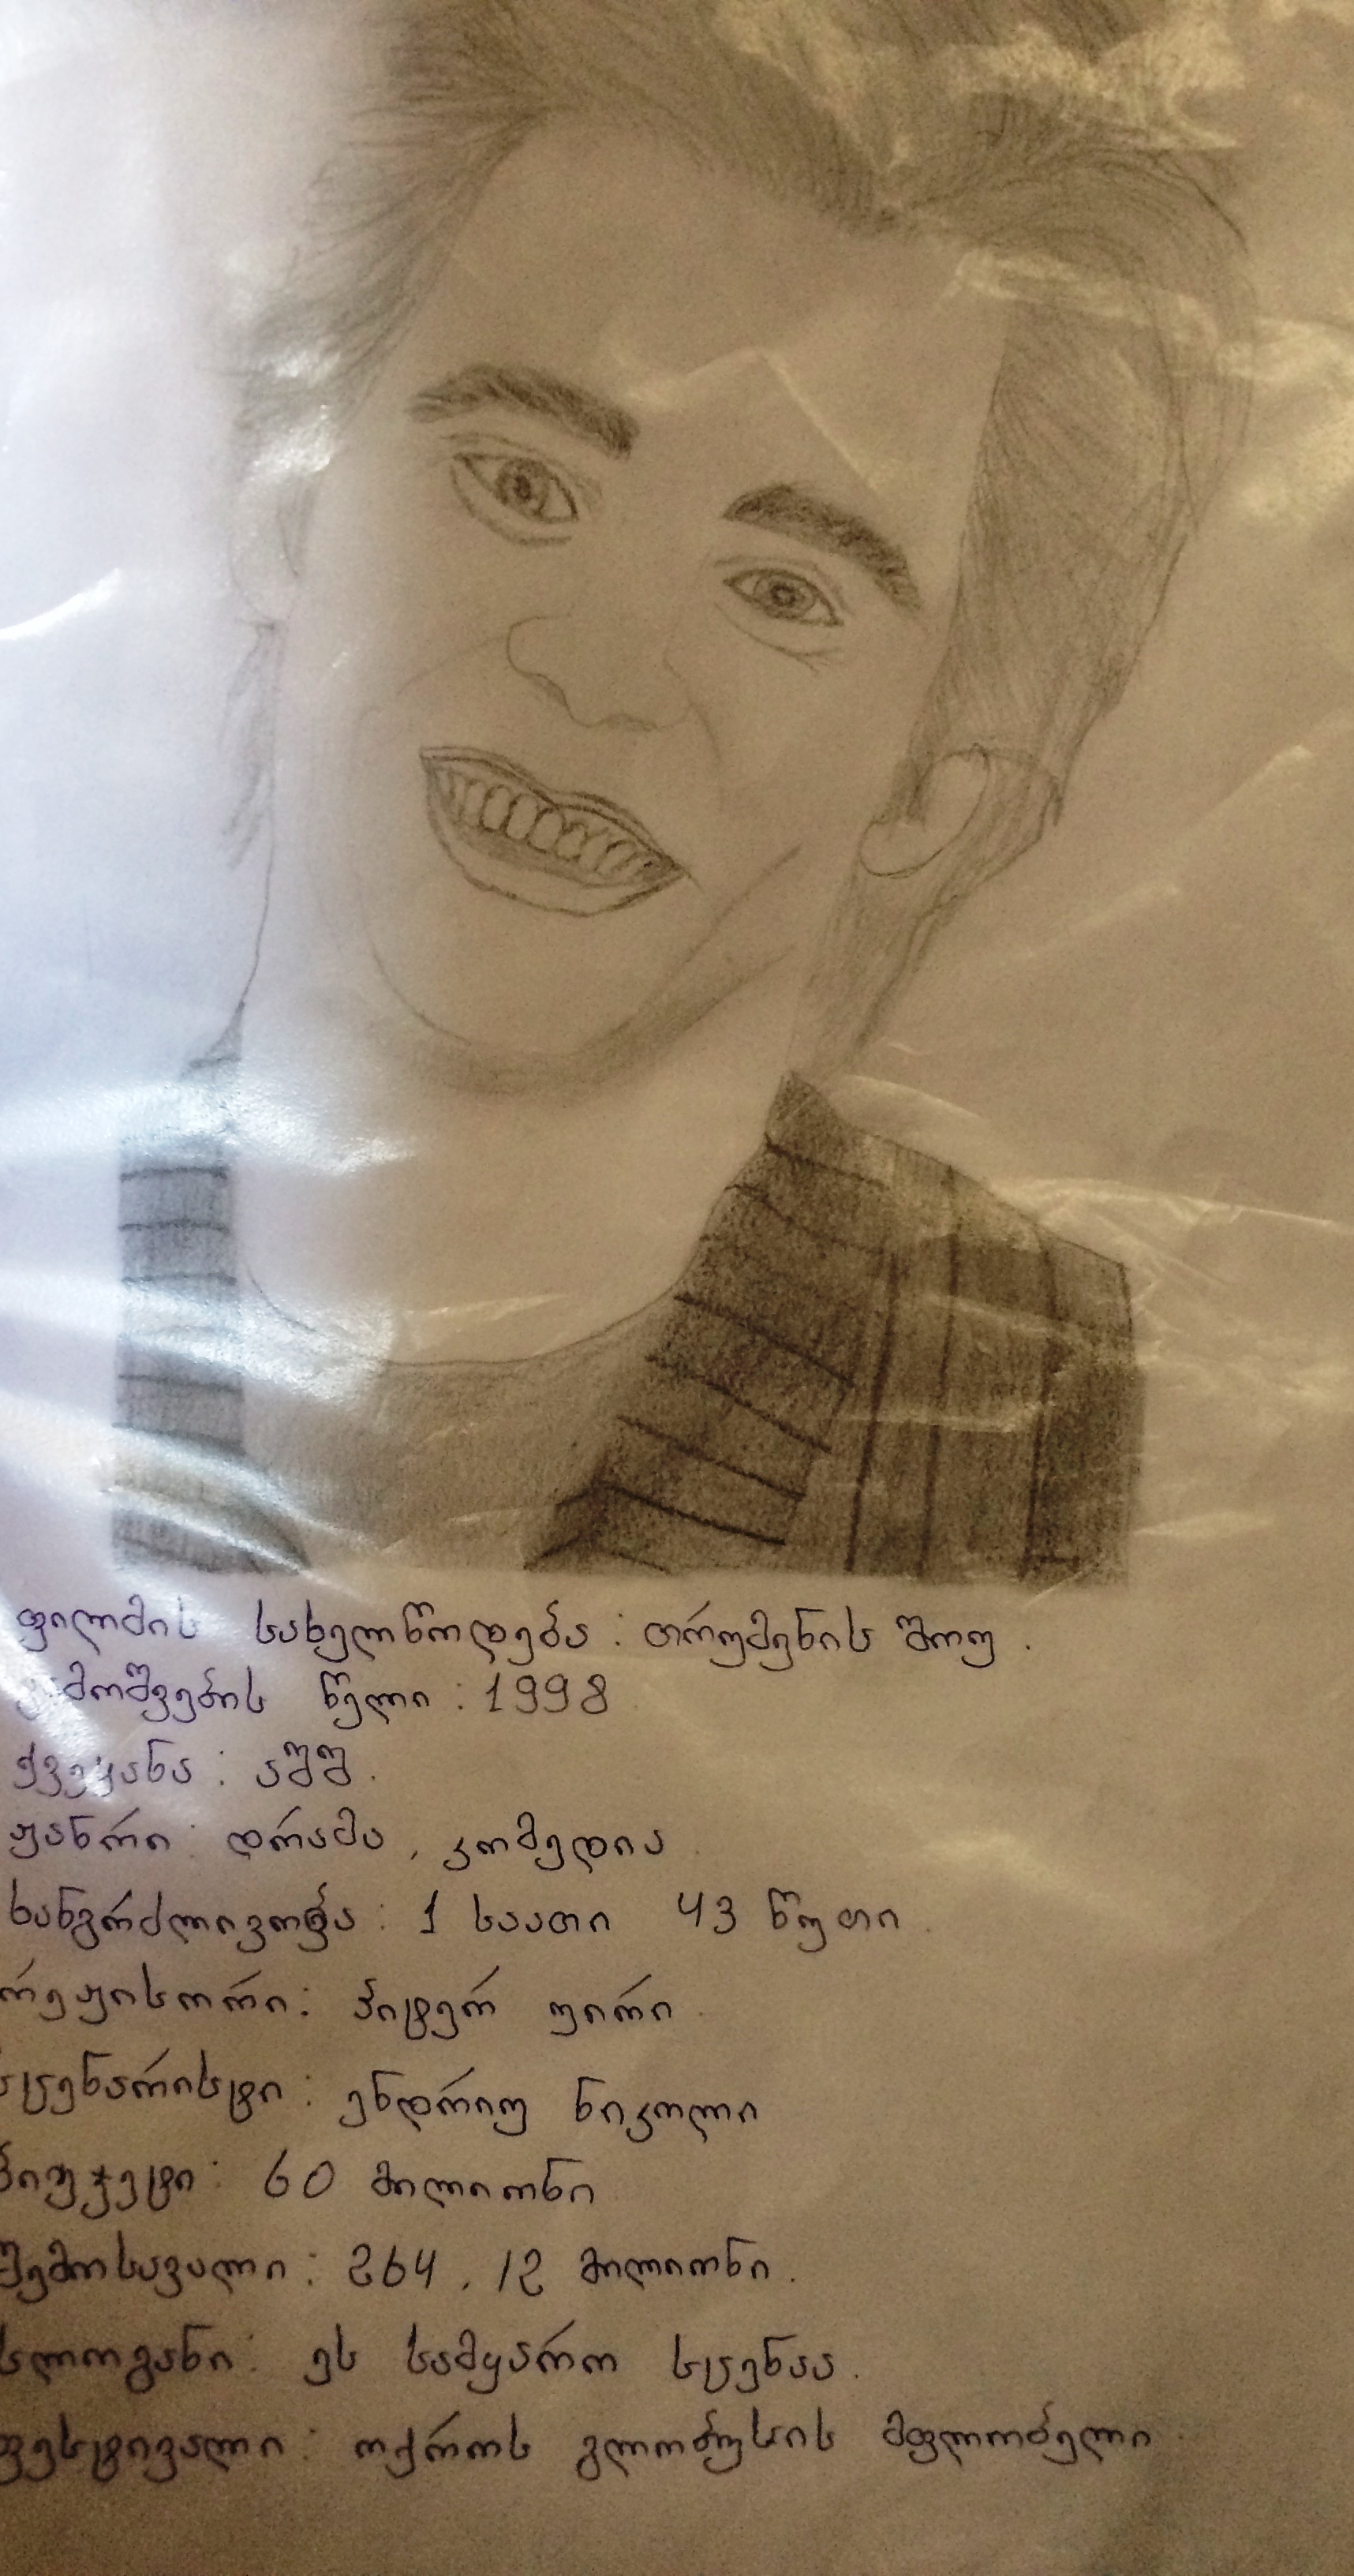 ფილმის სახელწოდება : თრუმენის შოუ .
გამოშვების წელი : 1998
ქვეყანა : აშშ .
ჟანრი : დრამა , კომედია .
ხანგრძლივობა : 1 საათი 43 წუთი .
რეჟისორი : პიტერ უირი .
სცენარისტი : ენდრიუ ნიკოლი
ბიუჯეტი : 60 მილიონი
შემოსავალი : 264 . 12 მილიონი .
სლოგანი : ეს სამყარო სცენაა .
ფესტივალი : ოქროს გლობუსის მფლობელი .